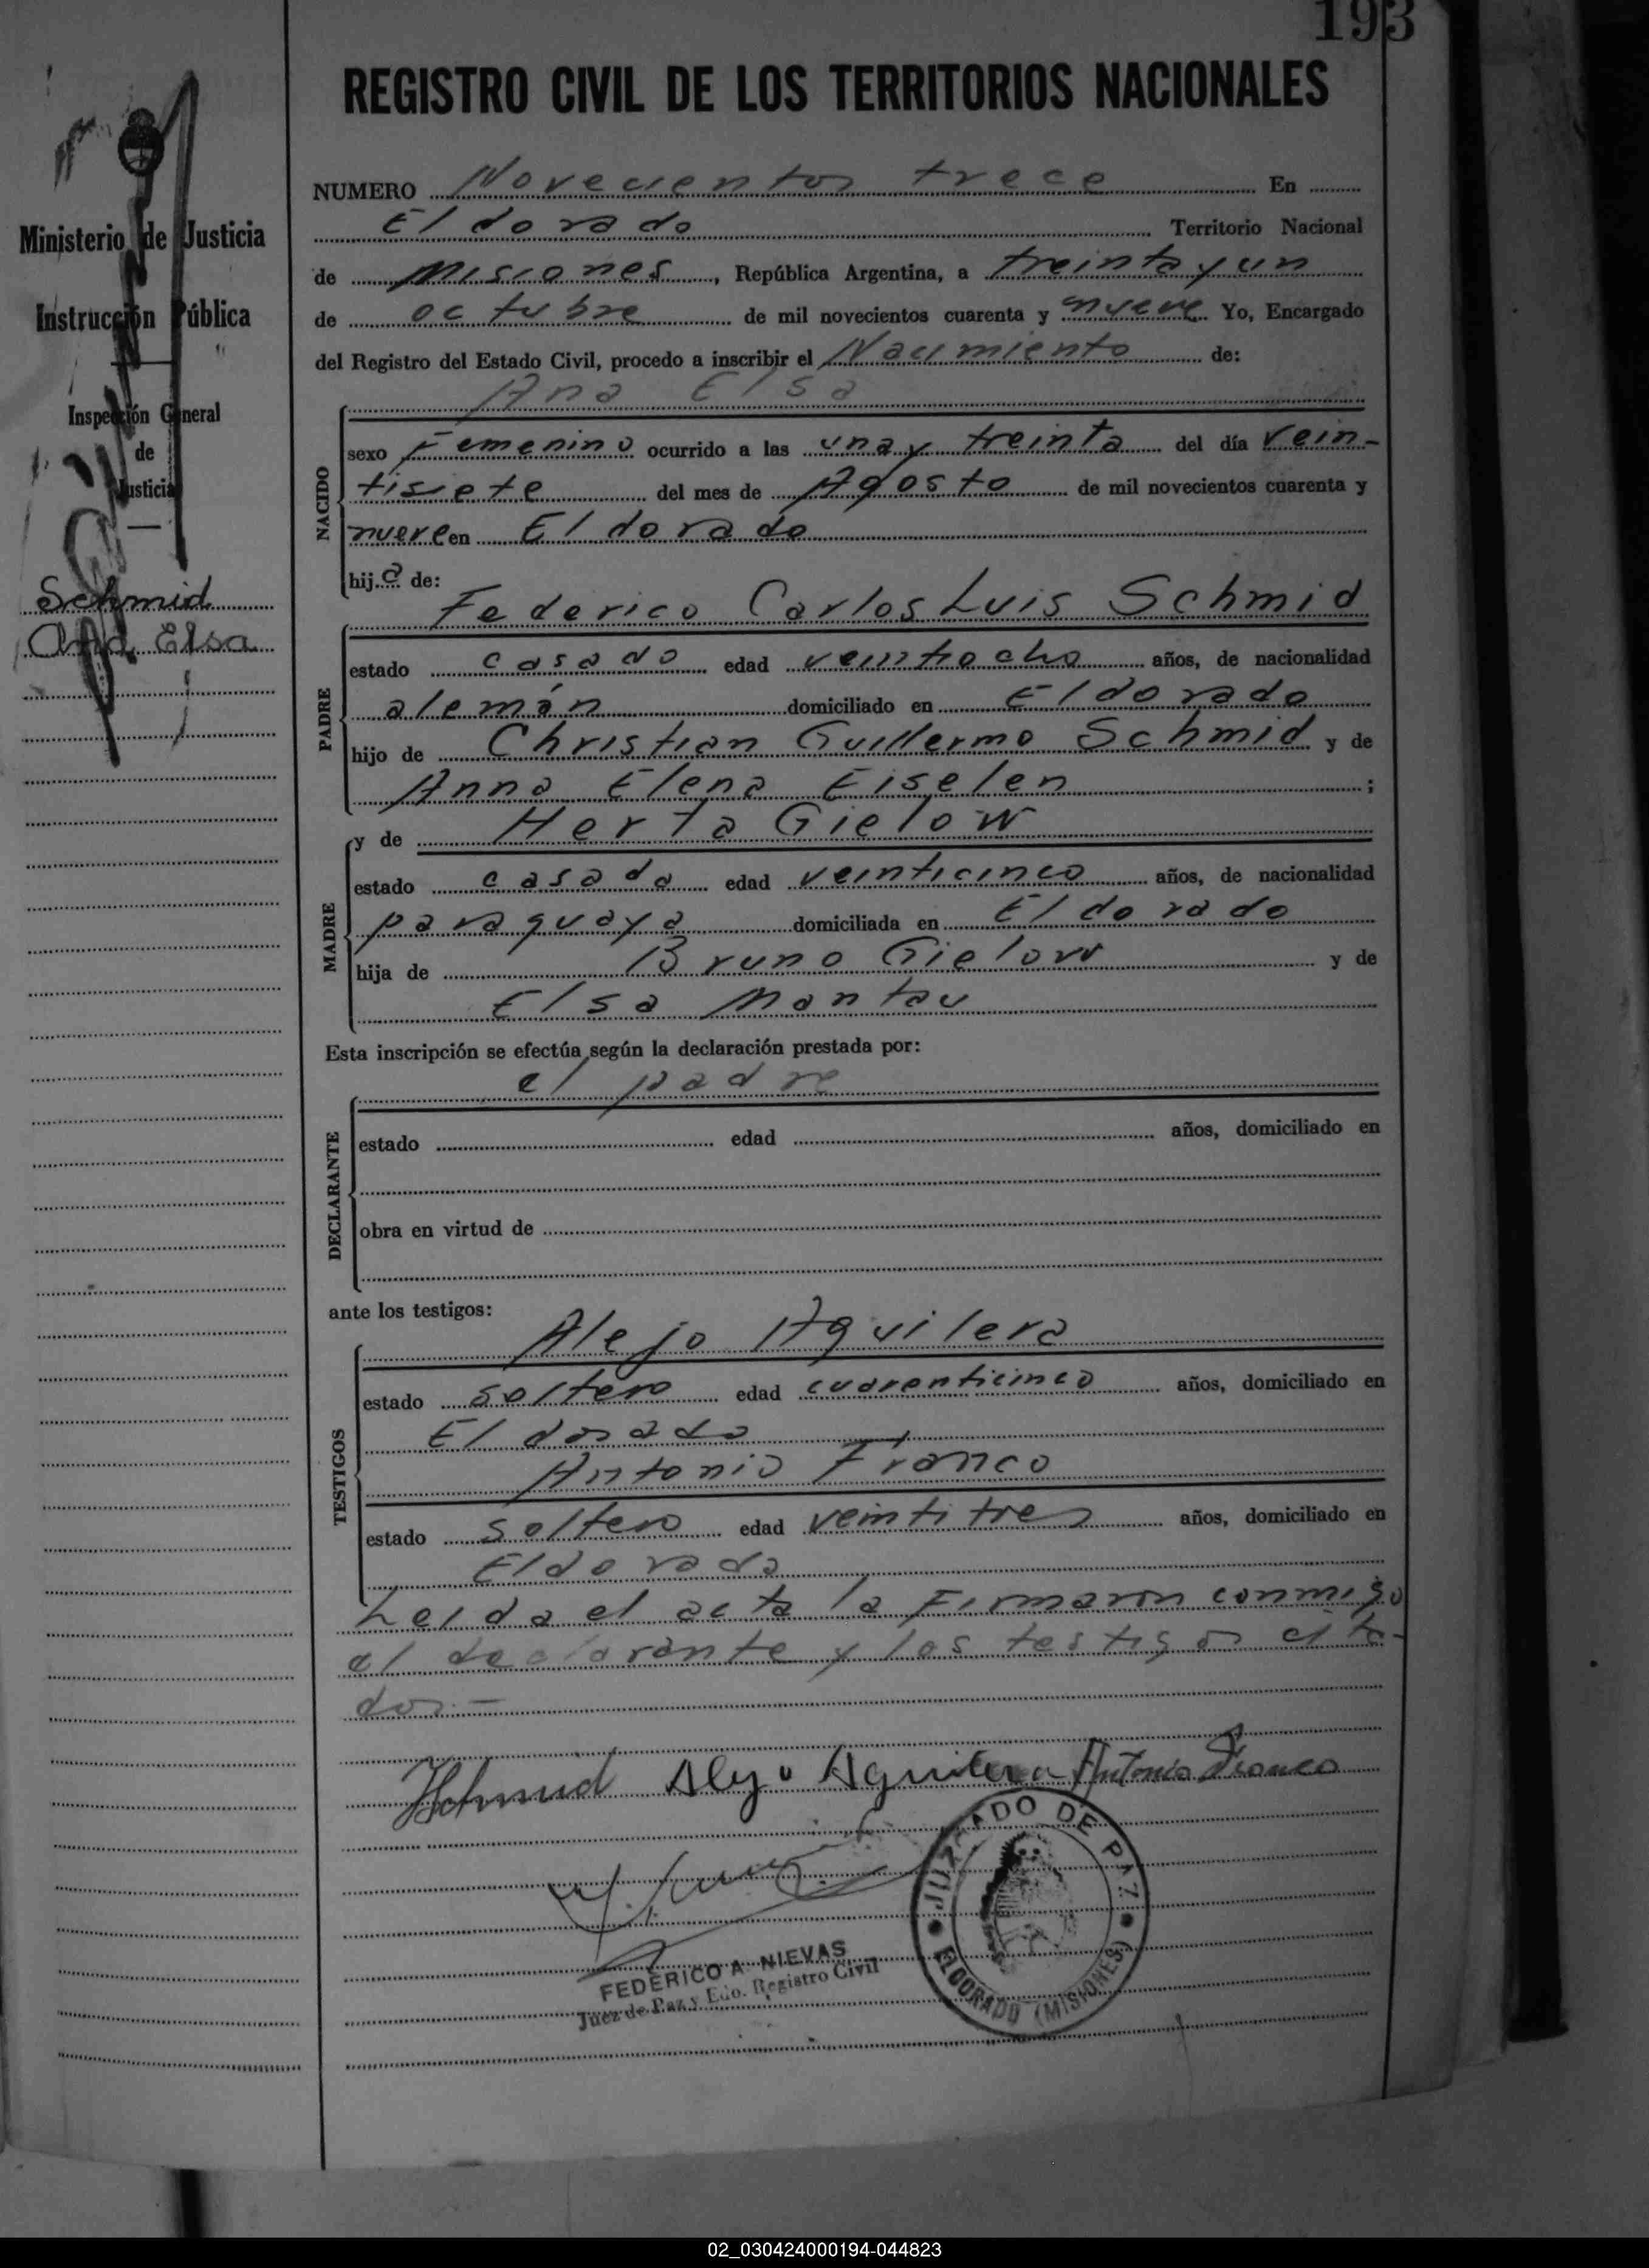 193
REGISTRO CIVIL DE LOS TERRITORIOS NACIONALES
Ministerio de Justicia
Instrucción Pública
Inspección General
de
Justicia
Schmid
Ana Elsa
NUMERO Novecientos trece En
Eldorado Territorio Nacional
de Misiones, República Argentina, a treinta y un
de octubre de mil novecientos cuarenta y nueve Yo, Encargado
del Registro del Estado Civil, procedo a inscribir el Nacimiento de:
Ana Elsa
NACIDO
sexo Femenino ocurrido a las una y treinta del día vein-
tisiete del mes de Agosto de mil novecientos cuarenta y
nueve en Eldorado
hija de:
Federico Carlos Luis Schmid
PADRE
estado casado edad veintiocho años, de nacionalidad
alemán domiciliado en Eldorado
hijo de Christian Guillermo Schmid y de
Anna Elena Eiselen ;
y de Herta Gielow
MADRE
estado casada edad veinticinco años, de nacionalidad
paraguaya domiciliada en Eldorado
hija de Bruno Gielow y de
Elsa Mantau
Esta inscripción se efectúa según la declaración prestada por:
el padre
DECLARANTE
estado edad años, domiciliado en
obra en virtud de
ante los testigos:
Alejo Aguilera
TESTIGOS
estado soltero edad cuarenticinco años, domiciliado en
Eldorado
Antonio Franco
estado soltero edad veintitres años, domiciliado en
Eldorado
Leida el acta la Firmaron conmigo
el declarante y los testigos cita-
dos.—
Schmid Alejo Aguilera Antonio Franco
JUZGADO DE PAZ
ELDORADO (MISIONES)
FEDERICO A. NIEVAS
Juez de Paz y Edo. Registro Civil
02_030424000194-044823